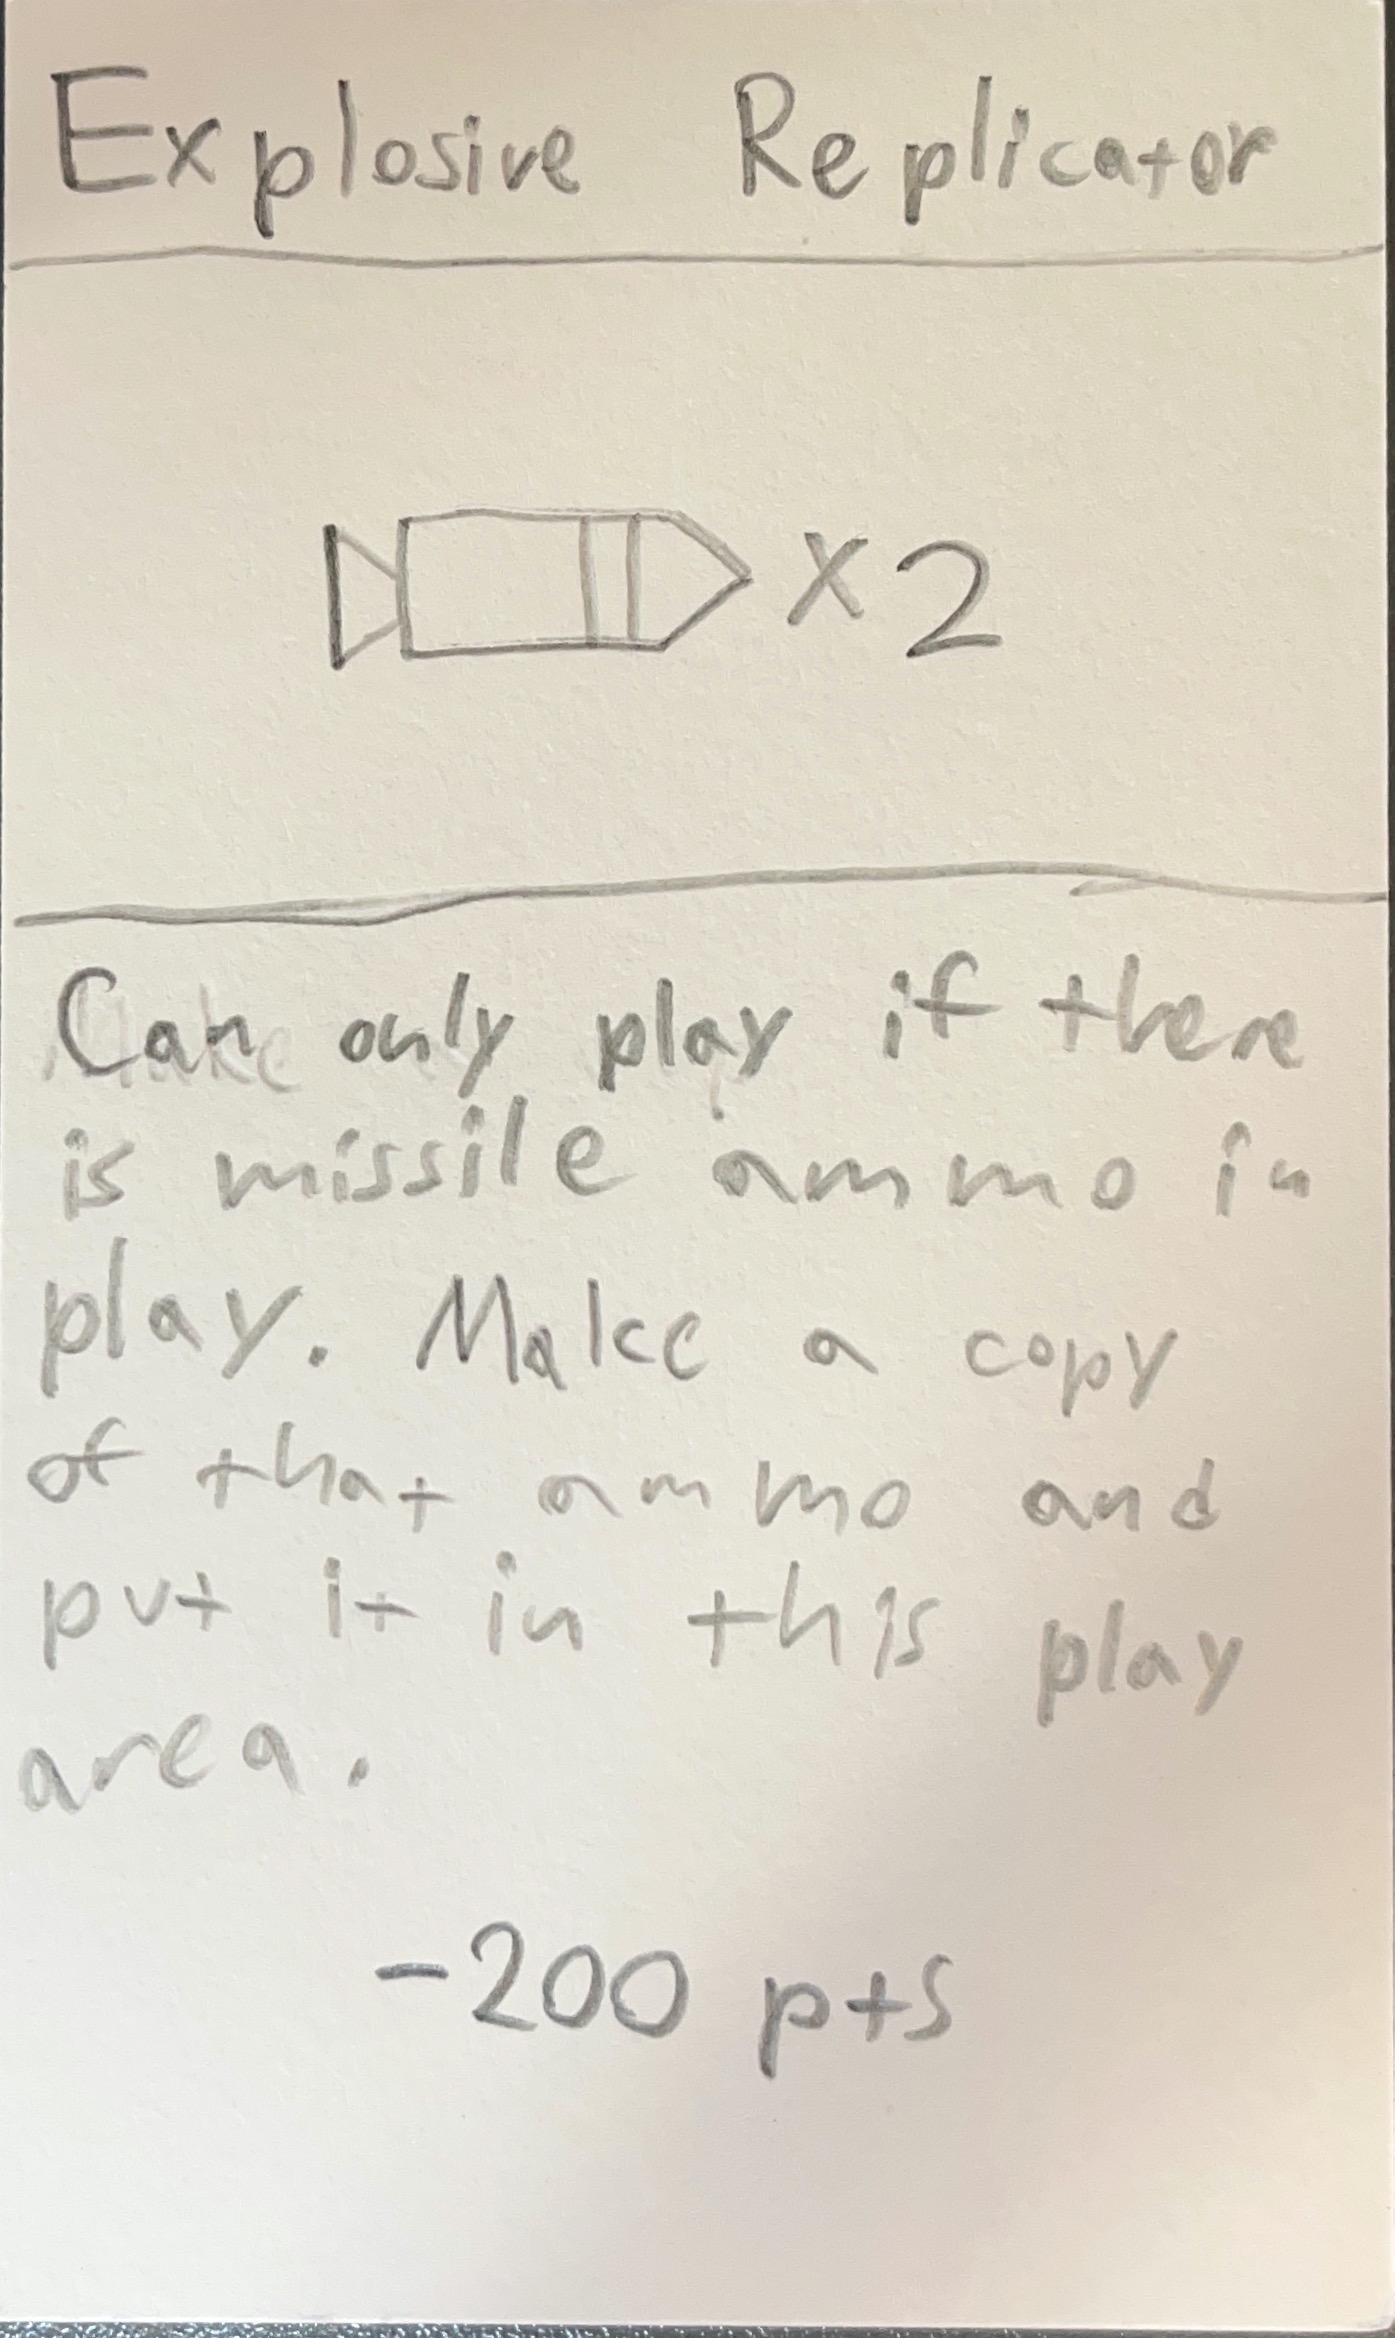 Explosive Replicator
x2
Can only play if there
is missile ammo in
play. Make a copy
of that ammo and
put it in this play
area.
-200 pts